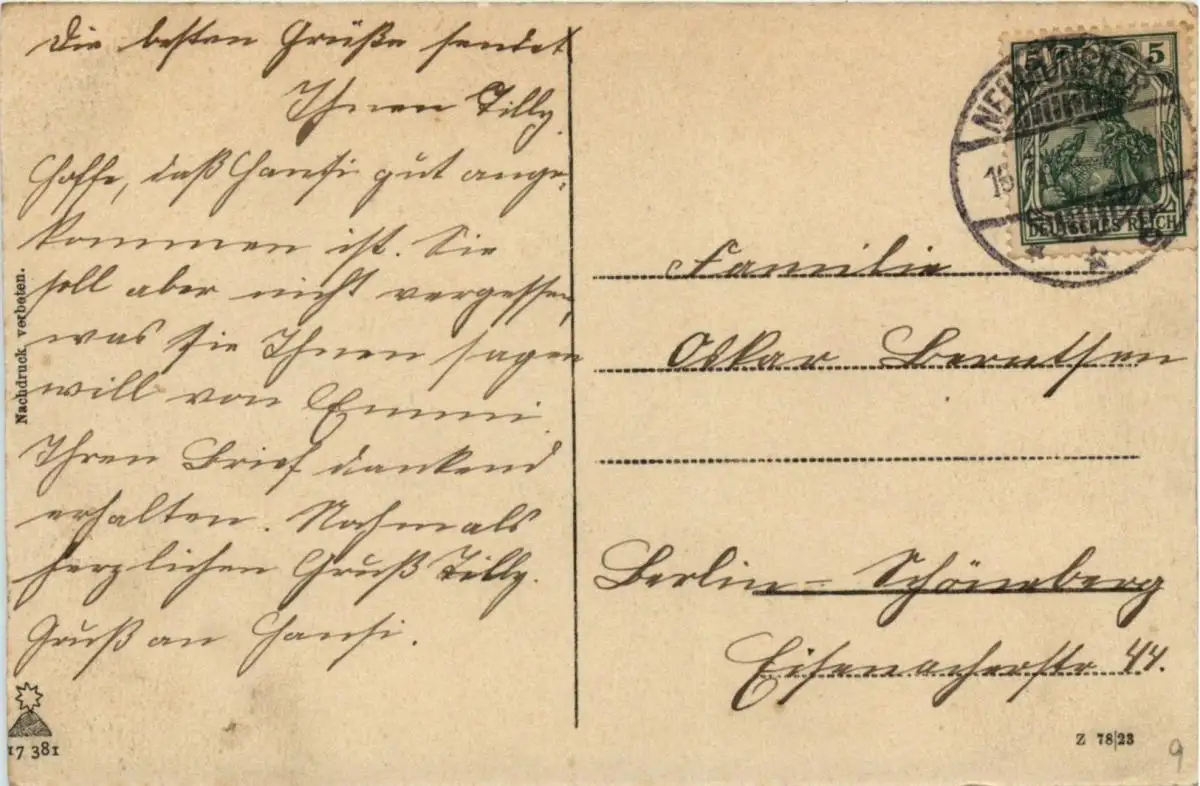 Die besten Grüße sendet
Ihnen Tilly.
Hoffe, daß Hansi gut ange-
kommen ist. Sie
soll aber nicht vergessen,
was sie Ihnen sagen
will von Emmi.
Ihren Brief dankend
erhalten. Nochmals
herzlichen Gruß Tilly.
Gruß an Hansi.
Nachdruck verboten.
17 381
5 5
DEUTSCHES REICH
Familie
Oskar Berntsen
Berlin-Schöneberg
Eisenacherstr 44.
Z 78|23
9